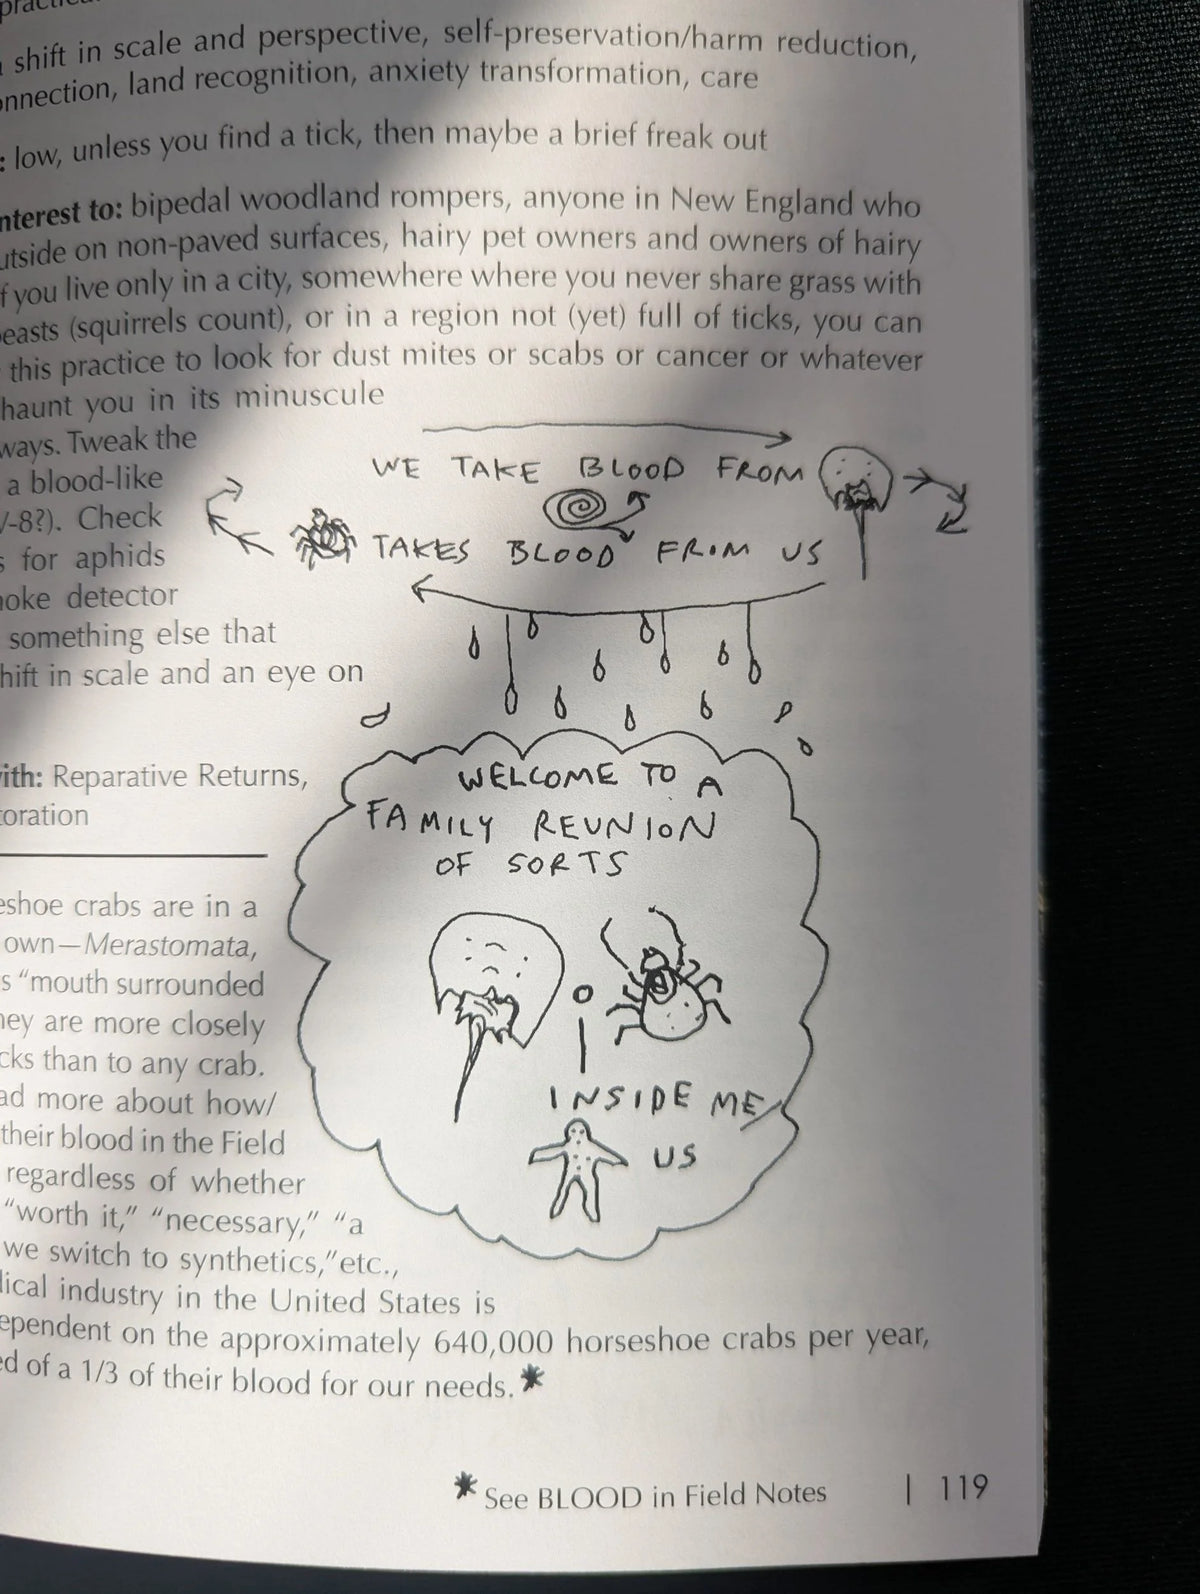 shift in scale and perspective, self-preservation/harm reduction,
land recognition, anxiety transformation, care
: low, unless you find a tick, then maybe a brief freak out
to: bipedal woodland rompers, anyone in New England who
on non-paved surfaces, hairy pet owners and owners of hairy
you live only in a city, somewhere where you never share grass with
(squirrels count), or in a region not (yet) full of ticks, you can
this practice to look for dust mites or scabs or cancer or whatever
haunt you in its minuscule
ways. Tweak the
a blood-like
-8?). Check
for aphids
detector
something else that
in scale and an eye on
WE TAKE BLOOD FROM
TAKES BLOOD FROM US
WELCOME TO A
FAMILY REUNION
OF SORTS
INSIDE ME/
US
Reparative Returns,
crabs are in a
own—Merastomata,
“mouth surrounded
are more closely
than to any crab.
more about how/
their blood in the Field
regardless of whether
“worth it,” “necessary,” “a
we switch to synthetics,” etc.,
industry in the United States is
on the approximately 640,000 horseshoe crabs per year,
of a 1/3 of their blood for our needs.*
* See BLOOD in Field Notes | 119